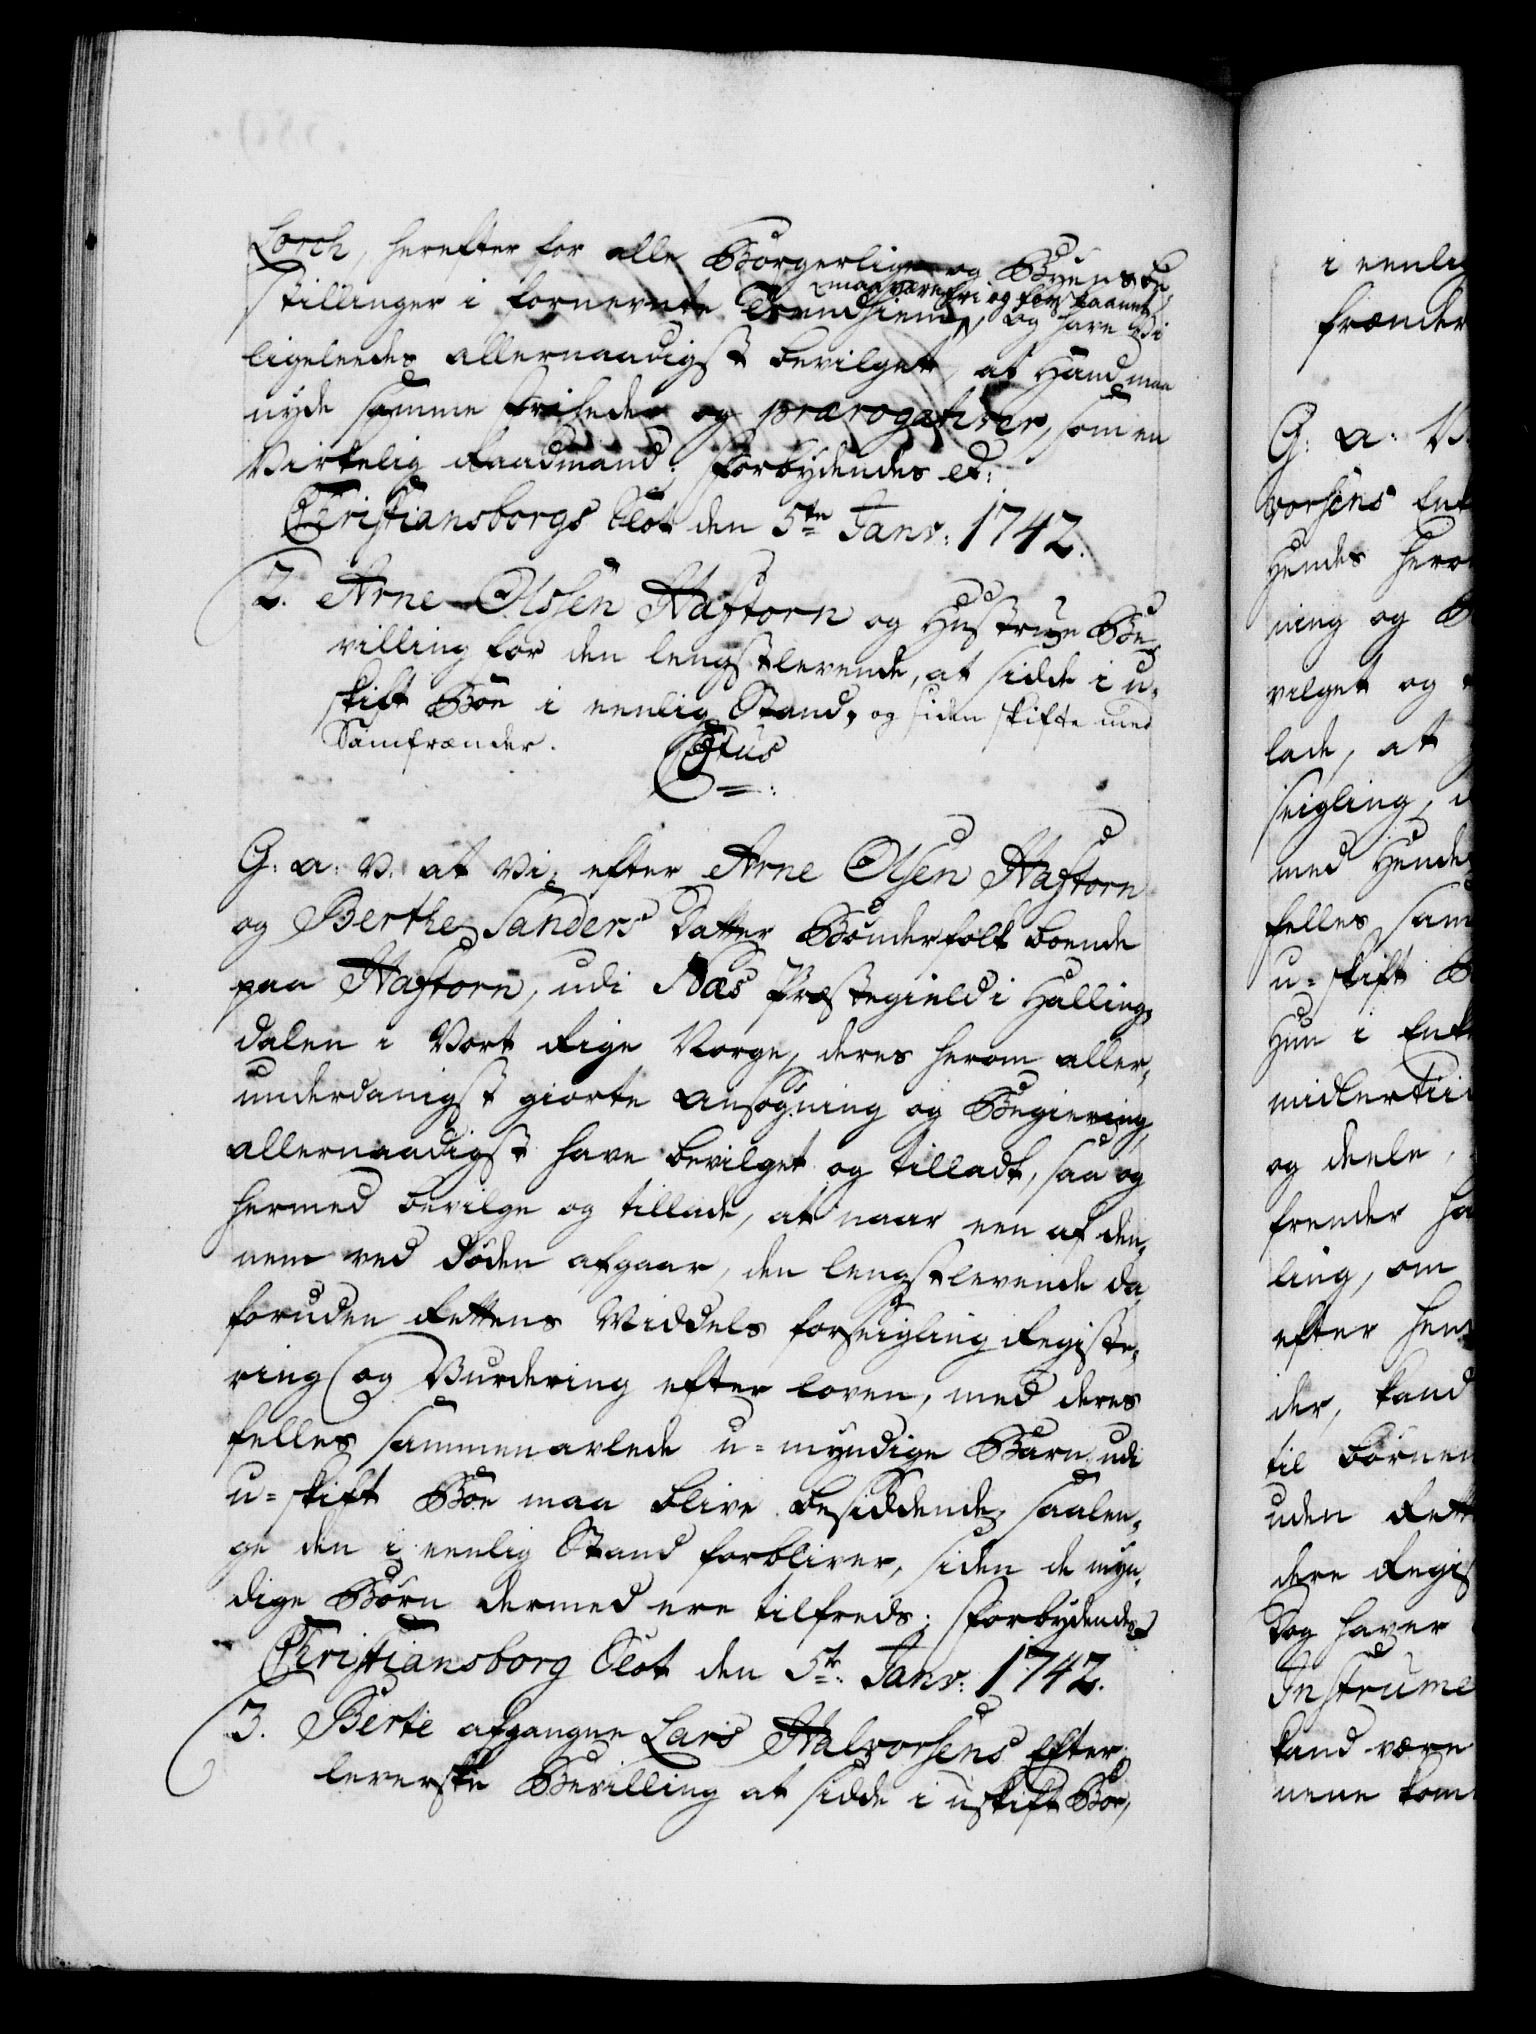 Lorch, herefter for alle Borgerlige og Byens be,
maa være fri og forskaanet
stillinger i fornevnte Trondhiem, og have Vi
ligeleedes allernaadigst bevilget, at Hand maa
nyde samme friheder og prærogativer, som en
Virkelig Raadmand; forbydendes etc:
Christiansborgs Slot den 5te Janv: 1742.
2. Arne Olssen Haftorn og Hustrue Be,
villing for den lengstlevende, at sidde i u-
skift Boe i eenlig Stand, og siden skifte med
Samfrænder.
C5tus
G: a: V: at Vi, efter Arne Olsen Haftorn
og Berthe Sanders Datter Bønderfolk boende
paa Haftorn, udi Næs Præstegield i Halling,
dalen i Vort Rige Norge, deres herom aller,
underdanigst giorte Ansøgning og Begiering,
allernaadigst have bevilget og tilladt, saa og
hermed bevilge og tillade, at naar een af den,
nem ved Døden afgaar, den lengstlevende da
foruden Rettens Middels forseigling Registe,
ring og Vurdering efter loven, med deres
felles sammenavlede u-myndige Børn udi
u-skift Boe maa blive besiddende, saalen,
ge den i eenlig Stand forbliver, siden de myn,
dige Børn dermed ere tilfreds; forbydendes
Christiansborg Slot den 5te Janv: 1742.
3. Berte afgangne Lars Halvorsens Efter,
leverske Bevilling at sidde i uskift Boe,
i eenlig
frænder
G: a: V:
vorsens
Hendes herom
ning og B
vilget og
lade, at
seigling,
med Hendes
felles sam
u-skift B
Hun i Enke
midlertiid
og deele,
frender ha
ling, om
efter hen
der, kand
til børnene
uden Rett
dere Regis
Dog haver
Instrume
kand være
nene kom